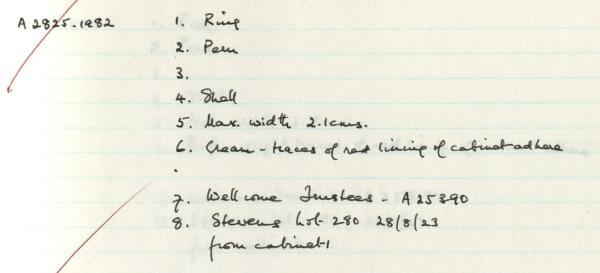 A 2825-1982 1. Ring
2. Peru
3.
4. Shell
5. Max. width 2.1cms.
6. Cream - traces of red lining of cabinet adhere
.
7. Wellcome Trustees - A 25390
8. Stevens lot 280 28/8/23
from cabinet 1